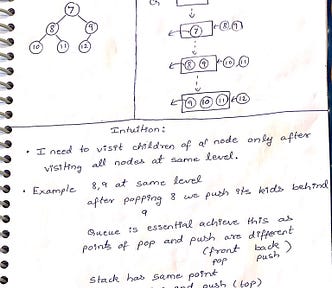 7
8 9
10 11 12
7 8, 9
8 9 10, 11
9 10 11 12
Intuition:
• I need to visit children of a node only after
visiting all nodes at same level.
• Example 8,9 at same level
after popping 8 we push its kids behind
9
Queue is essential achieve this as
points of pop and push are different
(front back)
pop push
Stack has same point
and push (top)